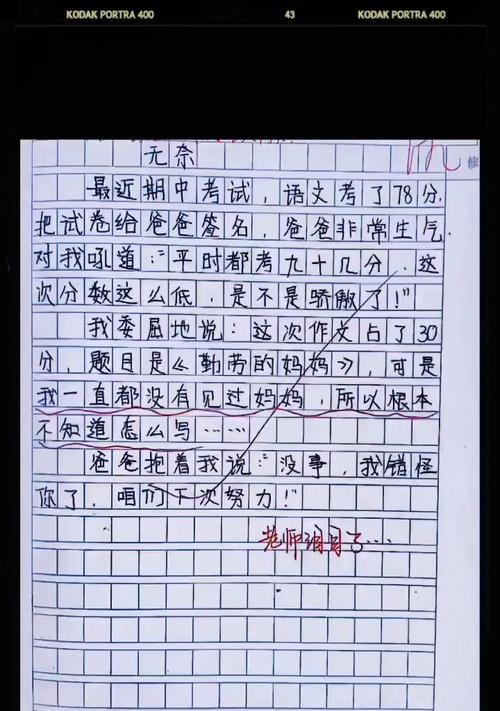 KODAK PORTRA 400 43 KODAK PORTRA 400
修
无奈
最近期中考试，语文考了78分，
把试卷给爸爸签名，爸爸非常生气，
对我吼道：“平时都考九十几分，这
次分数这么低，是不是骄傲了！”
我委屈地说：这次作文占了30
分，题目是《勤劳的妈妈》，可是
我一直都没有见过妈妈，所以根本
不知道怎么写……
爸爸抱着我说：“没事，我错怪
你了，咱们下次努力！”
老师泪目了……